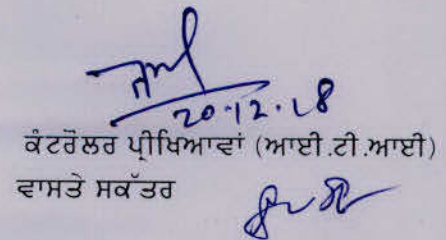 20.12.18
ਕੰਟਰੌਲਰ ਪ੍ਰੀਖਿਆਵਾਂ (ਆਈ.ਟੀ.ਆਈ)
ਵਾਸਤੇ ਸਕੱਤਰ